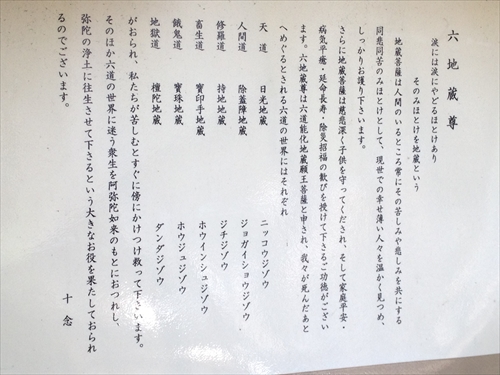 六地蔵尊
涙には涙にやどるほとけあり
そのみほとけを地蔵という
地蔵菩薩は人間のいるところ常にその苦しみや悲しみを共にする
同悲同苦のみほとけとして、現世での幸せ薄い人々を温かく見つめ、
しっかりお護り下さいます。
さらに地蔵菩薩は慈悲深く子供を守ってくだされ、そして家庭平安・
病気平癒・延命長寿・除災招福の歓びを授けて下さるご功徳がござい
ます。六地蔵尊は六道能化地蔵願王菩薩と申され、我々が死んだあと
へめぐるとされる六道の世界にはそれぞれ
天道 日光地蔵 ニッコウジゾウ
人間道 除蓋障地蔵 ジョガイショウジゾウ
修羅道 持地地蔵 ジチジゾウ
畜生道 宝印手地蔵 ホウインシュジゾウ
餓鬼道 宝珠地蔵 ホウジュジゾウ
地獄道 檀陀地蔵 ダンダジゾウ
がおられ、私たちが苦しむとすぐに傍にかけつけ救って下さいます。
そのほか六道の世界に迷う衆生を阿弥陀如来のもとにおつれし、
弥陀の浄土に往生させて下さるという大きなお役を果たしておられ
るのでございます。
十念